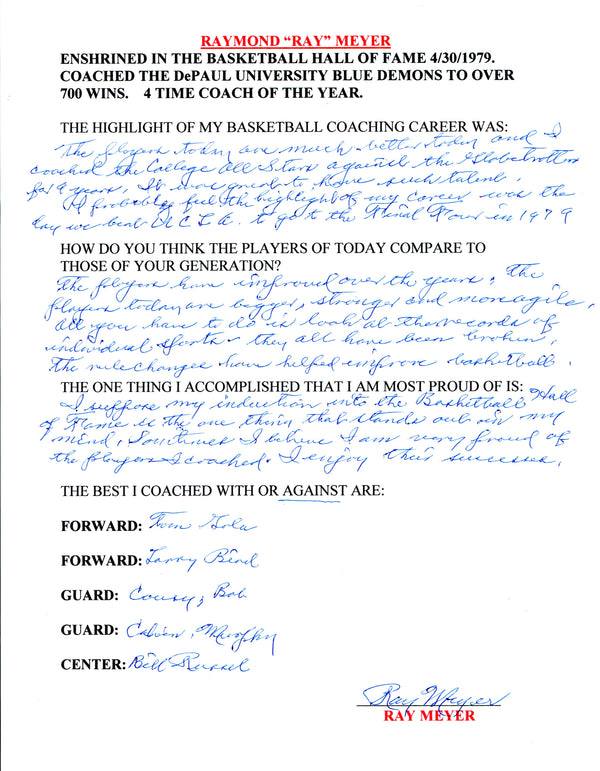 RAYMOND “RAY” MEYER
ENSHRINED IN THE BASKETBALL HALL OF FAME 4/30/1979.
COACHED THE DePAUL UNIVERSITY BLUE DEMONS TO OVER
700 WINS. 4 TIME COACH OF THE YEAR.
THE HIGHLIGHT OF MY BASKETBALL COACHING CAREER WAS:
The players today are much better today and I
coached the College All Stars against the Globetrotters
for 9 years, It was great to have such talent.
I probably feel the highlight of my career was the
day we beat U C L A. to go to the Final Four in 1979
HOW DO YOU THINK THE PLAYERS OF TODAY COMPARE TO
THOSE OF YOUR GENERATION?
The players have improved over the years, The
players today are bigger, stronger and more agile.
All you have to do is look at the records of
individual sports - they all have been broken.
The rule changes have helped improve basketball.
THE ONE THING I ACCOMPLISHED THAT I AM MOST PROUD OF IS:
I suppose my induction into the Basketball Hall
of Fame is the one thing that stands out in my
mind, Sometimes I believe I am very proud of
the players I coached. I enjoy their successes.
THE BEST I COACHED WITH OR AGAINST ARE:
FORWARD: Tom Gola
FORWARD: Larry Bird
GUARD: Cousy, Bob
GUARD: Calvin, Murphy
CENTER: Bill Russel
Ray Meyer
RAY MEYER